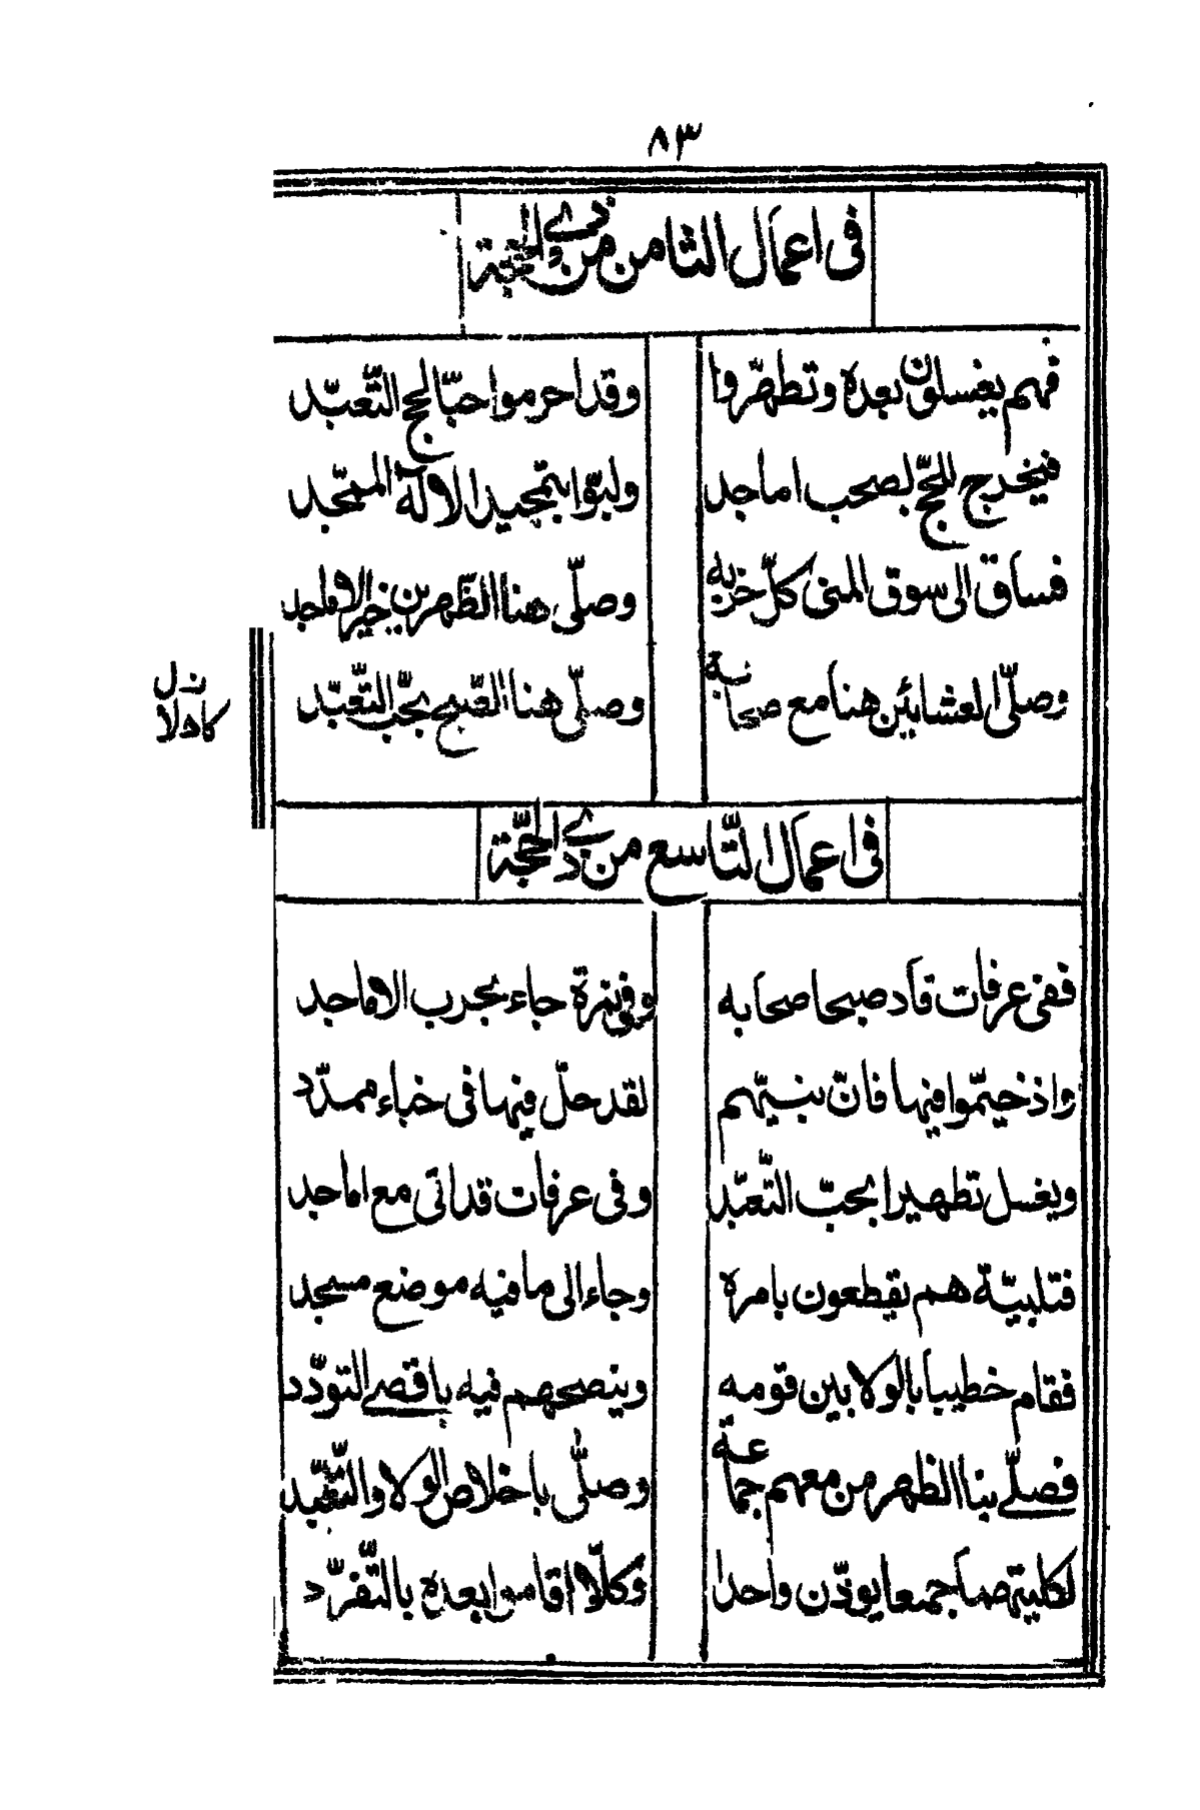 ٨٣
فی اعمال الثامن من ذے الحجة
فهم یغسلون بعده وتطهّروا وقد احرموا حبّا لحج التّعبّد
فیخرج للحجّ بصحب اماجد ولبّوا بتمجید الالٰه الممجّد
فساق الی سوق المنی کلّ حزبه وصلّی هنا الظّهرین خیر الاماجد
وصلّی العشائین هنا مع صحابة وصلّی هنا الصّبح بحبّ التّعبّد
فی اعمال التّاسع من ذے الحجّة
ففی عرفات قاد صبحا صحابه وفی نمرة جاء بحرب الاماجد
واذ خیّموا فیها فانّ بنیّهم لقد حلّ فیها فی خباء ممدّد
ویغسل تطهیرا بحبّ التّعبّد وفی عرفات قد اتی مع اماجد
فتلبیّة هم یقطعون بامره وجاء الی ما فیه موضع مسجد
فقام خطیبا بالولا بین قومه وینصحهم فیه باقصے التودّد
فصلّے بنا الظهر من معهم جماعة وصلّی باخلاص الولا والتّقیّد
جمعا یوذّن واحدا وکلّا اقاموا بعده بالتّفرّد